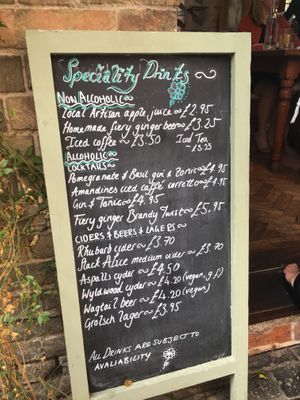 Speciality Drinks
Non Alcoholic
Local Artisan apple juice £2.95
Homemade fiery ginger beer £3.25
Iced coffee £3.50 Iced Tea £3.25
Alcoholic
Cocktails
Pomegranate & Basil gin & tonic £4.95
Amandines iced caffé corretto £4.95
Gin & Tonic £4.95
Fiery ginger Brandy Twist £5.95
Ciders & Beers & Lagers
Rhubarb cider £3.70
Slack Alice medium cider £3.70
Aspalls cyder £4.50
Wyldwood cyder £4.20 (vegan, g.f)
Wagtail beer £4.20 (vegan)
Grolsch lager £3.95
All Drinks are subject to
avaliability